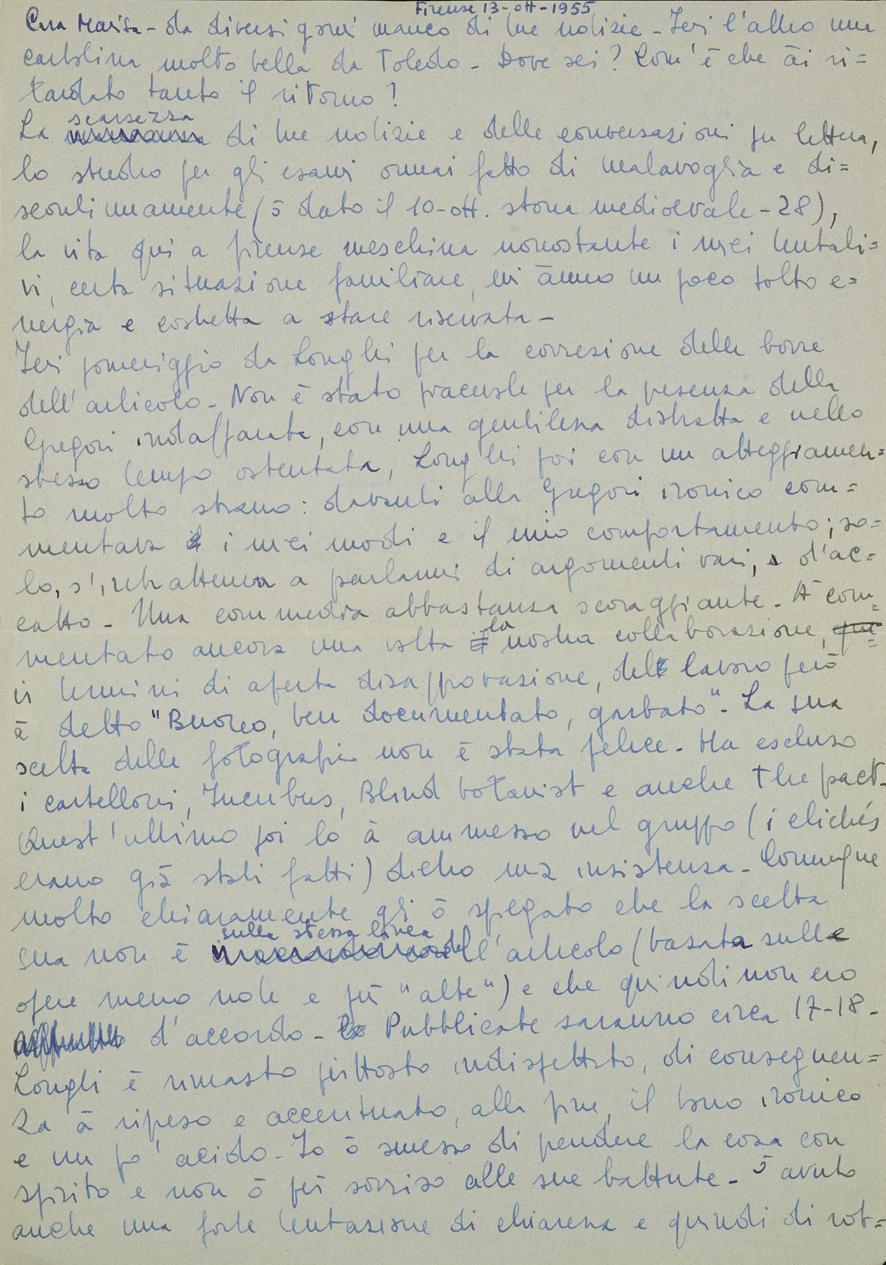 Firenze 13-ott-1955
Cara Marisa - da diversi giorni manco di tue notizie - Ieri l'altro una
cartolina molto bella da Toledo - Dove sei? Com'è che āi ri=
tardato tanto il ritorno?
La scarsezza di tue notizie e delle conversazioni per lettera,
lo studio per gli esami ormai fatto di malavoglia e di=
scontinuamente (ō dato il 10-ott. storia medioevale - 28),
la vita qui a firenze meschina nonostante i miei tentati=
vi, certa situazione familiare, mi ānno un poco tolto e=
nergia e costretta a stare riservata -
Ieri pomeriggio da Longhi per la correzione delle bozze
dell'articolo - Non è stato piacevole per la presenza della
Gregori indaffarata, con una gentilezza distratta e nello
stesso tempo ostentata, Longhi poi con un atteggiamen=
to molto strano: davanti alla Gregori ironico com=
mentava i miei modi e il mio comportamento; so=
lo, s'intratteneva a parlarmi di argomenti vari, d'ac=
catto - Una commedia abbastanza scoraggiante - Ā com=
mentato ancora una volta la nostra collaborazione,
in termini di aperta disapprovazione, del lavoro però
ā detto "Buono, ben documentato, garbato" - La sua
scelta delle fotografie non è stata felice - Ha escluso
i cartelloni, Incubus, Blind botanist e anche The pact -
Quest'ultimo poi lo ā ammesso nel gruppo (i clichés
erano già stati fatti) dietro mia insistenza - Comunque
molto chiaramente gli ō spiegato che la scelta
sua non è sulla stessa linea dell'articolo (basata sulle
opere meno note e più "alte") e che quindi non ero
d'accordo - Pubblicate saranno circa 17-18 -
Longhi è rimasto piuttosto indispettito, di conseguen=
za ā ripreso e accentuato, alla fine, il tono ironico
e un po' acido - Io ō smesso di prendere la cosa con
spirito e non ō più sorriso alle sue battute - ō avuto
anche una forte tentazione di chiarezza e quindi di rot=